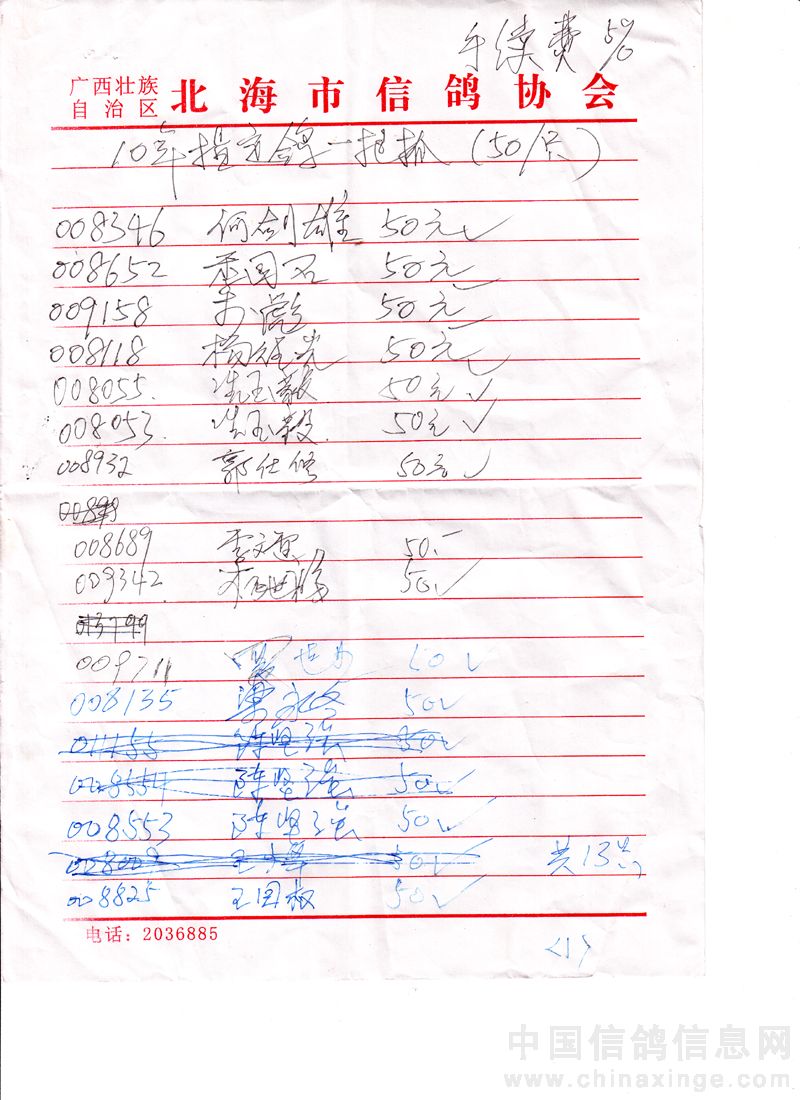 手续费 5%
广西壮族
自治区 北海市信鸽协会
10年指定鸽一把抓 (50/只)
008346 何剑雄 50元✓
008652 国石 50元
009158 50元
008118 杨 光 50元
008055 冼玉毅 50元✓
008053 冼玉毅 50元✓
008932 郭仕修 50元✓
008689 李文 50.-
009342 50✓
009711 世 50✓
008135 永 50✓
011155 陈坚强 50✓
陈坚强 50✓
008553 陈坚强 50✓
008003 王 50✓ 共13只
008825 王国权 50✓
电话: 2036885
<1>
中国信鸽信息网
www.chinaxinge.com